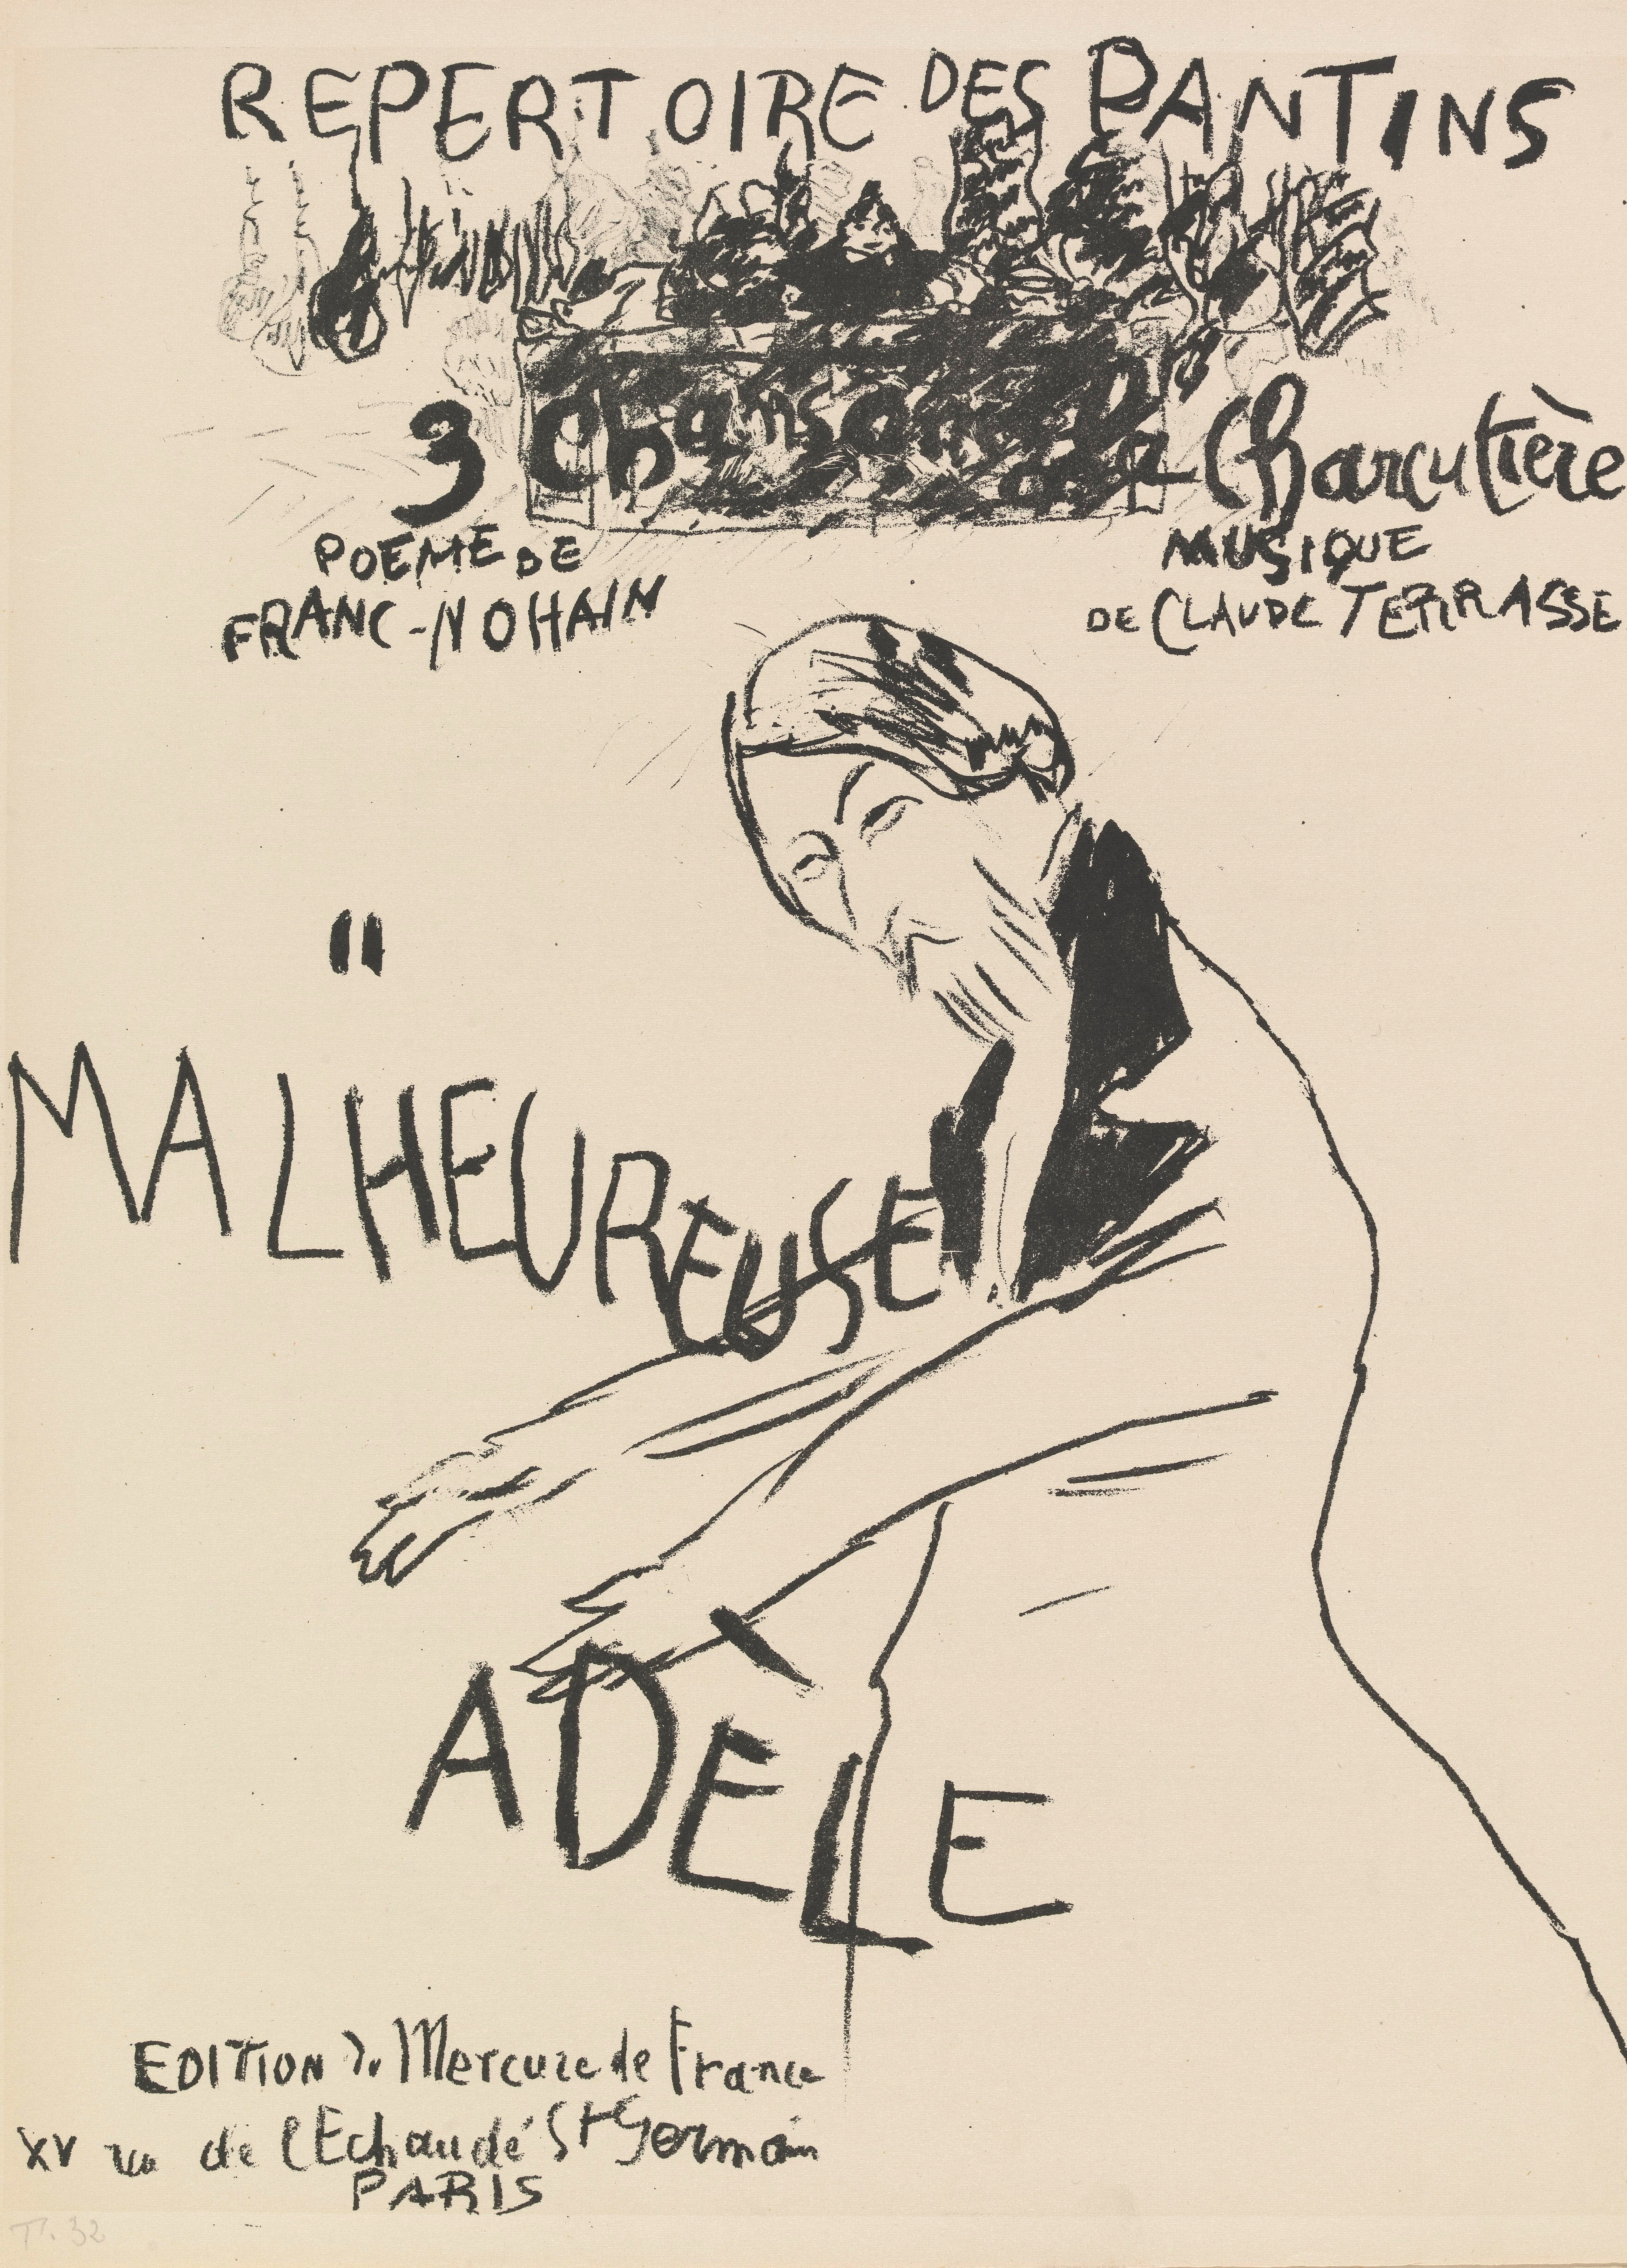 REPERTOIRE DES PANTINS
3 Chansons à la Charcutière
POEME DE
FRANC-NOHAIN
MUSIQUE
DE CLAUDE TERRASSE
"
MALHEUREUSE
ADÈLE
EDITION du Mercure de France
XV rue de l'Echaudé St Germain
PARIS
T. 32